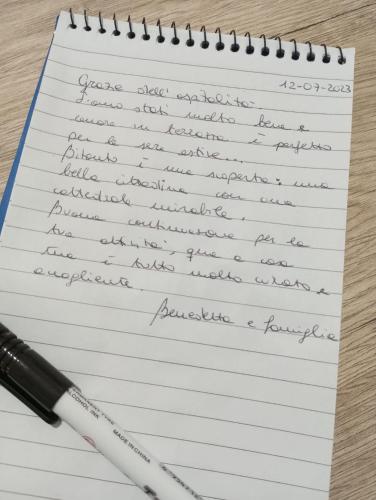 12-07-2023
Grazie dell'ospitalità.
Siamo stati molto bene e
cenare in terrazza è perfetto
per le sere estive...
Bitonto è una scoperta: una
bella cittadina con una
cattedrale mirabile.
Buona continuazione per la
tua attività, qua a casa
tua è tutto molto curato e
accogliente.
Benedetta e famiglia
ALCOHOL INK
MADE IN CHINA